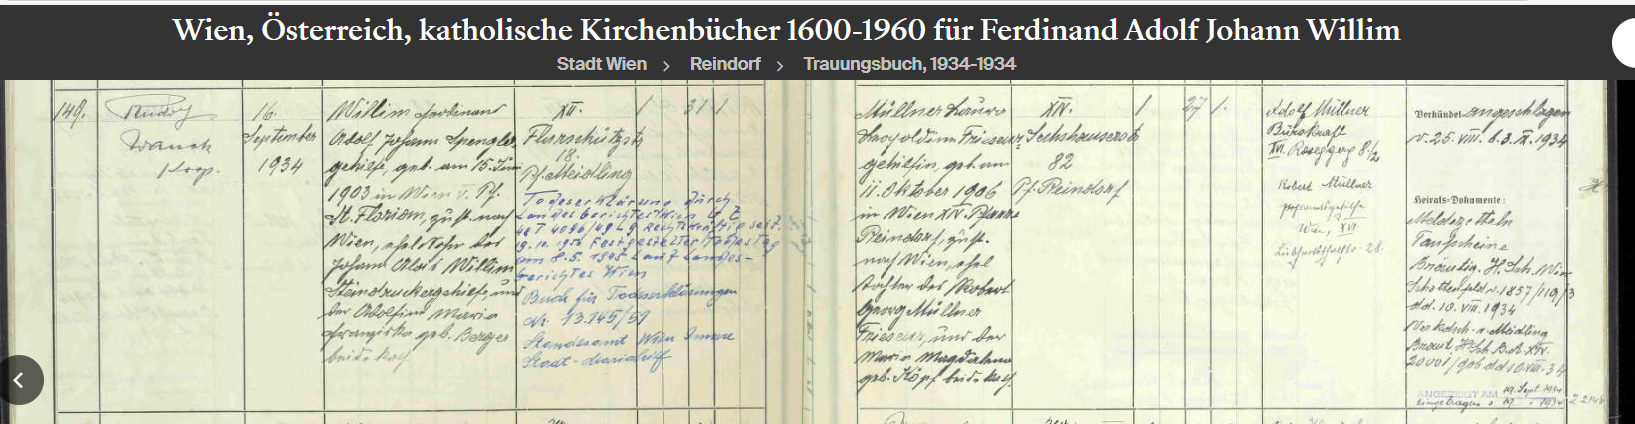 Wien, Österreich, katholische Kirchenbücher 1600-1960 für Ferdinand Adolf Johann Willim
Stadt Wien > Reindorf > Trauungsbuch, 1934-1934
149.
Rudolf
Koop.
16.
September
1934
Willim Ferdinand
Adolf Johann Spengler
gehilfe, geb. am 15. Juni
1903 in Wien v. Pf.
St. Florian, zust. nach
Wien, ehel. Sohn des
Johann Alois Willim
Steindruckergehilfe, und
der Adolfine Maria
Franziska geb. Berger
beide kath.
XII.
Flurschützstr
18.
Pf. Meidling
Todeserklärung durch
Landesgericht Wien
48 T 4096/49 rechtskräftig seit
19.10.1950 Festgestellter Todestag
am 8.5.1945 Laut Landes-
gerichtes Wien
Buch für Todeserklärungen
Nr. 13.145/51
Standesamt Wien Innere
Stadt-Mariahilf
1
31
1
Müllner Laura
Leopoldine Friseur
gehilfin, geb. am
11. Oktober 1906
in Wien XIV. Pfarre
Reindorf, zust.
nach Wien, ehel.
Tochter des Robert
Georg Müllner
Friseur, und der
Maria Magdalena
geb. Köpf beide kath.
XIV.
Sechshauserstr
82
Pf. Reindorf
1
27
1.
Adolf Müllner
Bürokraft
XVI. Roseggerg 8/2
Robert Müllner
Wien, XVI.
28.
Verkündet angeschlagen
v. 25. VIII. b. 3. IX. 1934
Heirats-Dokumente:
Meldezetteln
Taufscheine
Bräutig. H. Sch. Wien
Schottenfeld v. 1857/119/3
dd. 10. VIII. 1934
Verkdsch. v. Meidling
Braut H. Sch. Bez. XIV.
dd 10. VIII. 34
ANGEZEIGT AM 19. Sept. 1934
eingetragen 19. 1934